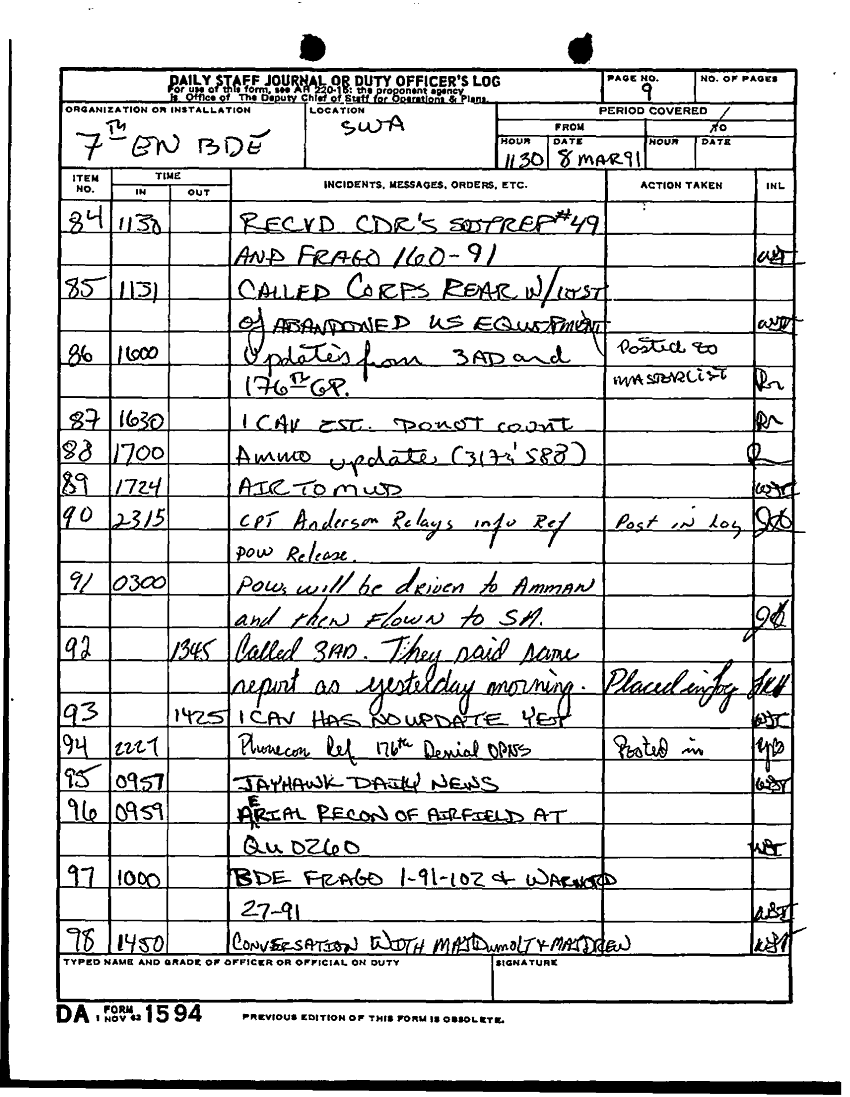 DAILY STAFF JOURNAL OR DUTY OFFICER'S LOG
For use of this form, see AR 220-15; the proponent agency
is Office of The Deputy Chief of Staff for Operations & Plans.
PAGE NO.
9
NO. OF PAGES
ORGANIZATION OR INSTALLATION
7TH EN BDE
LOCATION
SWA
PERIOD COVERED
FROM
TO
HOUR
1130
DATE
8 MAR 91
HOUR
DATE
ITEM NO.
TIME
IN
OUT
INCIDENTS, MESSAGES, ORDERS, ETC.
ACTION TAKEN
INL
84 1130 RECVD CDR'S SITREP #49
AND FRAGO 160-91
85 1131 CALLED CORPS REAR W/ LIST
of ABANDONED US EQUIPMENT
86 1600 Updates from 3AD and Posted to
176TH GP. MASTERLIST Rr
87 1630 1 CAV EST. DO NOT COUNT Rr
88 1700 Ammo update (3173' 588) R
89 1724 AIR TO MWD
90 2315 CPT Anderson Relays info Ref Post in Log
POW Release.
91 0300 POWs will be driven to AMMAN
and then Flown to SA.
92 1345 Called 3AD. They said same
report as yesterday morning. Placed in log
93 1425 1 CAV HAS NO UPDATE YET
94 2227 Phonecon Ref 176th Denial OPNS Posted in
95 0957 JAYHAWK DAILY NEWS
96 0959 AERIAL RECON OF AIRFIELD AT
QU 0260
97 1000 BDE FRAGO 1-91-102 & WARNORD
27-91
98 1450 CONVERSATION WITH MAJ Dumolt & MAJ DREW
TYPED NAME AND GRADE OF OFFICER OR OFFICIAL ON DUTY
SIGNATURE
DA FORM 1 NOV 62 1594
PREVIOUS EDITION OF THIS FORM IS OBSOLETE.